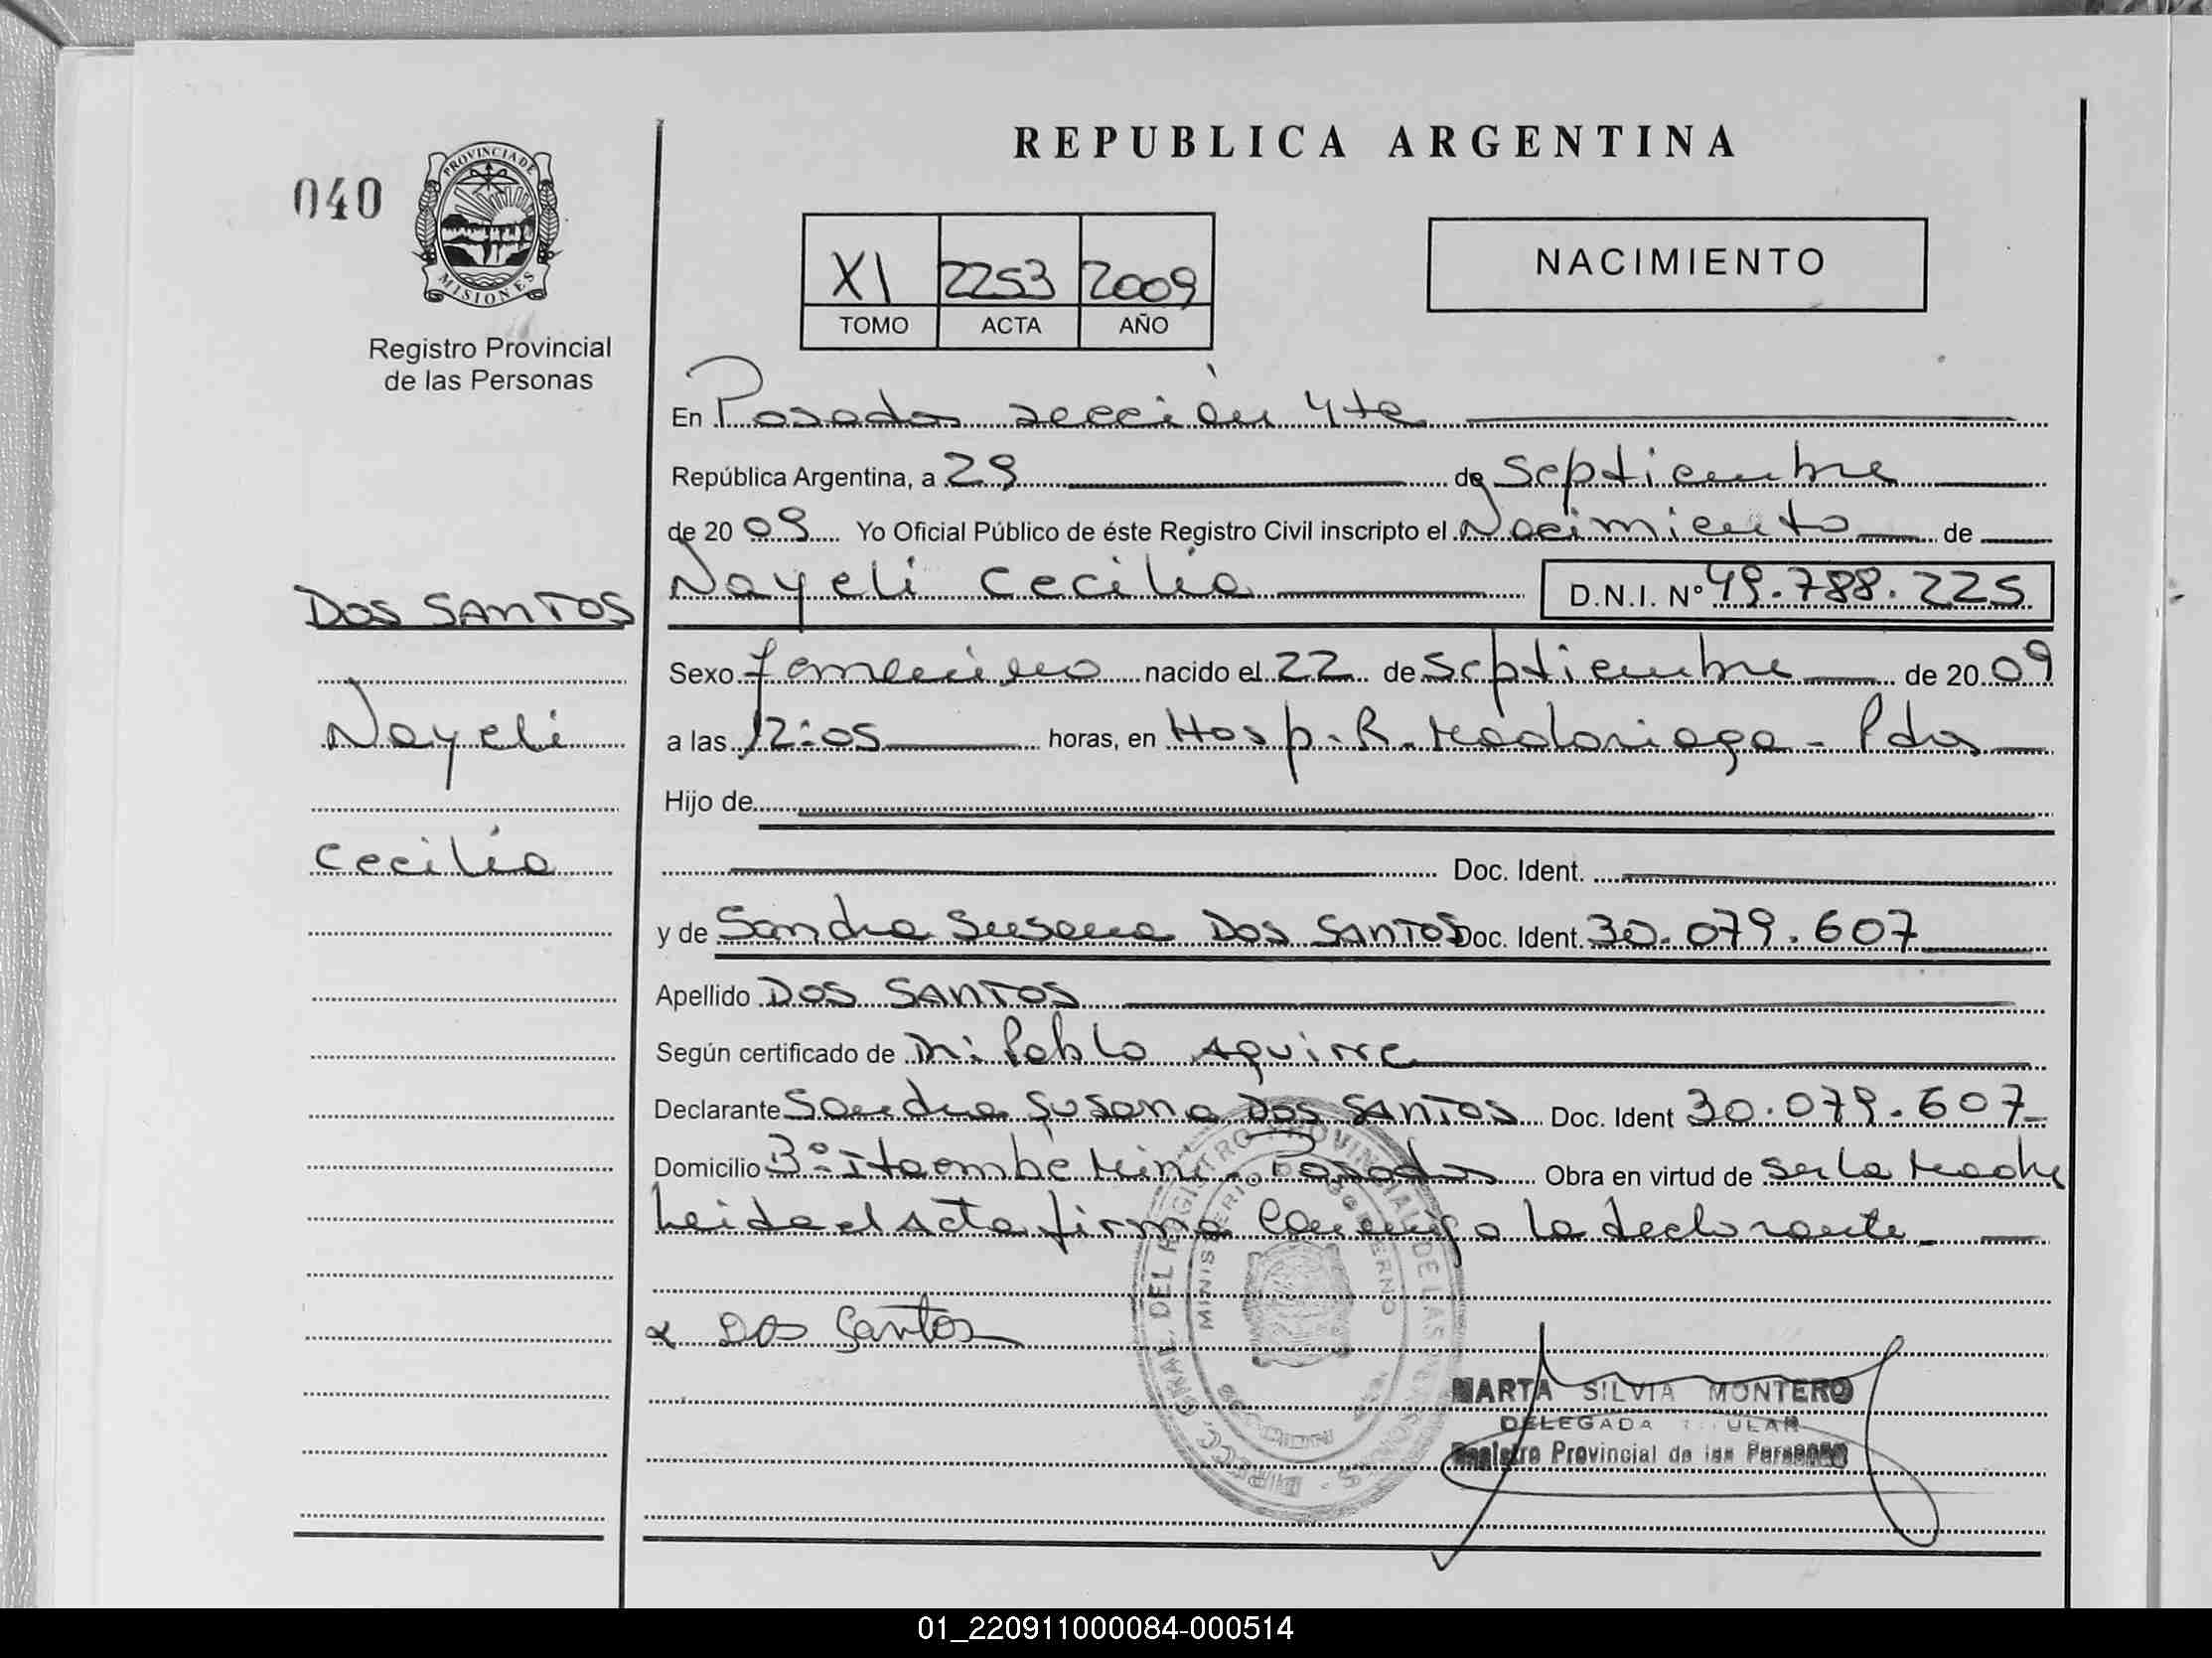 REPUBLICA ARGENTINA
040
PROVINCIA DE
MISIONES
Registro Provincial
de las Personas
XI 2253 2009
TOMO ACTA AÑO
NACIMIENTO
En Posadas sección 4ta
República Argentina, a 29 de Septiembre
de 20 09 Yo Oficial Público de éste Registro Civil inscripto el Nacimiento de
Nayeli Cecilia D.N.I. Nº 49.788.225
DOS SANTOS
Nayeli
Cecilia
Sexo femenino nacido el 22 de Septiembre de 20 09
a las 12:05 horas, en Hosp. R. Madariaga - Pdas
Hijo de
Doc. Ident.
y de Sandra Susana DOS SANTOS Doc. Ident. 30.079.607
Apellido DOS SANTOS
Según certificado de Pablo Aguirre
Declarante Sandra Susana DOS SANTOS Doc. Ident 30.079.607
Domicilio Bº Itaembé Mini - Posadas Obra en virtud de Ser la Madre
Leida el Acta firma Conmigo la declarante.
Dos Santos
MINISTERIO DE GOBIERNO
MARTA SILVIA MONTERO
DELEGADA TITULAR
Registro Provincial de las Personas
01_220911000084-000514